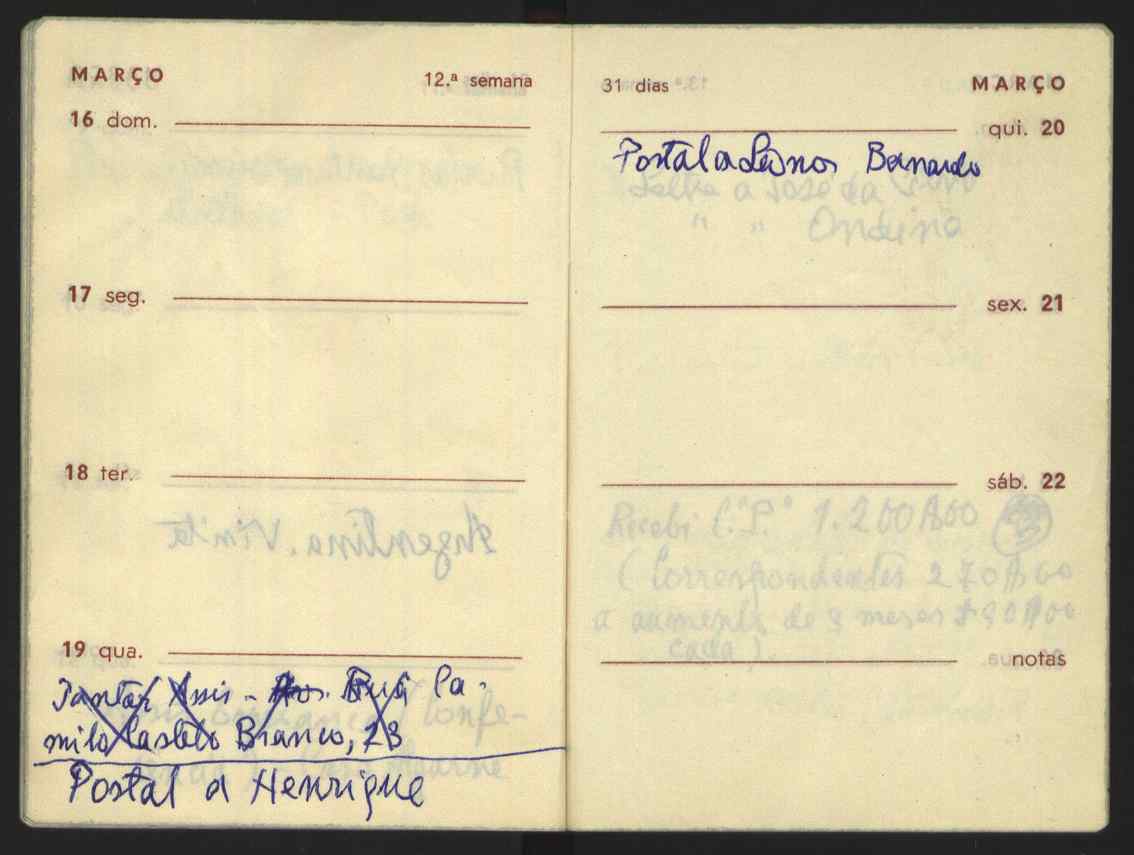 MARÇO 12.ª semana
16 dom.
17 seg.
18 ter.
19 qua.
Jantar Assis - Rua Ca-
milo Castelo Branco, 23
Postal a Henrique
31 dias MARÇO
qui. 20
Postal a Bernardo
Selha a José da
" " Ondina
sex. 21
sáb. 22
Recebi C."P." 1.200$00
(Correspondentes 270$00
a aumento de 3 meses $90$00
cada).
notas